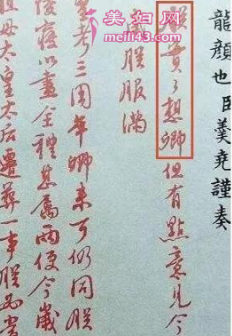 美妇网
meifu43.com
龍顏也臣羹堯謹奏
朕實々想卿但有點意見今
朕服滿
皇考三周年卿來可仍同朕
陵寢以盡全禮甚屬兩便今歲
母太皇太后遷葬一事朕必